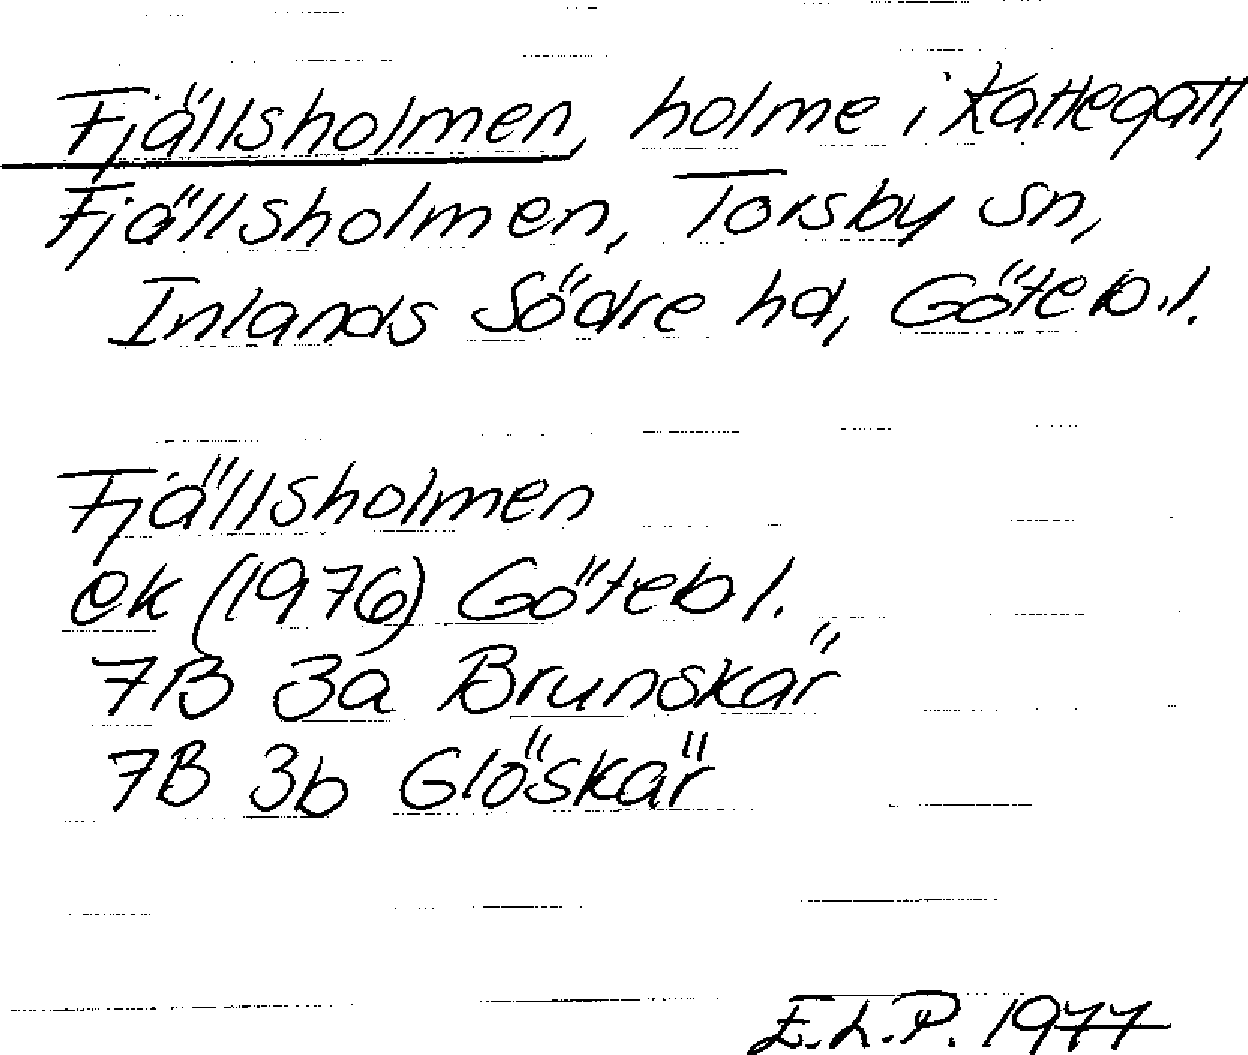 Fjällsholmen, holme i Kattegatt,
Fjällsholmen, Torsby sn,
Inlands Södre hd, Göteb.l.
Fjällsholmen
ek (1976) Göteb l.
7B 3a Brunskär
7B 3b Glöskär
E.L.P. 1977